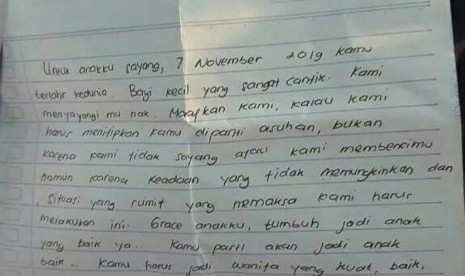 Untuk anakku sayang, 7 November 2019 kamu
terlahir kedunia. Bayi kecil yang sangat cantik. Kami
menyayangi mu nak. Maafkan kami, kalau kami
harus menitipkan kamu dipanti asuhan, bukan
karena kami tidak sayang atau kami membencimu
namun karena keadaan yang tidak memungkinkan dan
situasi yang rumit yang memaksa kami harus
melakukan ini. Grace anakku, tumbuh jadi anak
yang baik ya.. Kamu pasti akan jadi anak
baik.. Kamu harus jadi wanita yang kuat, baik,